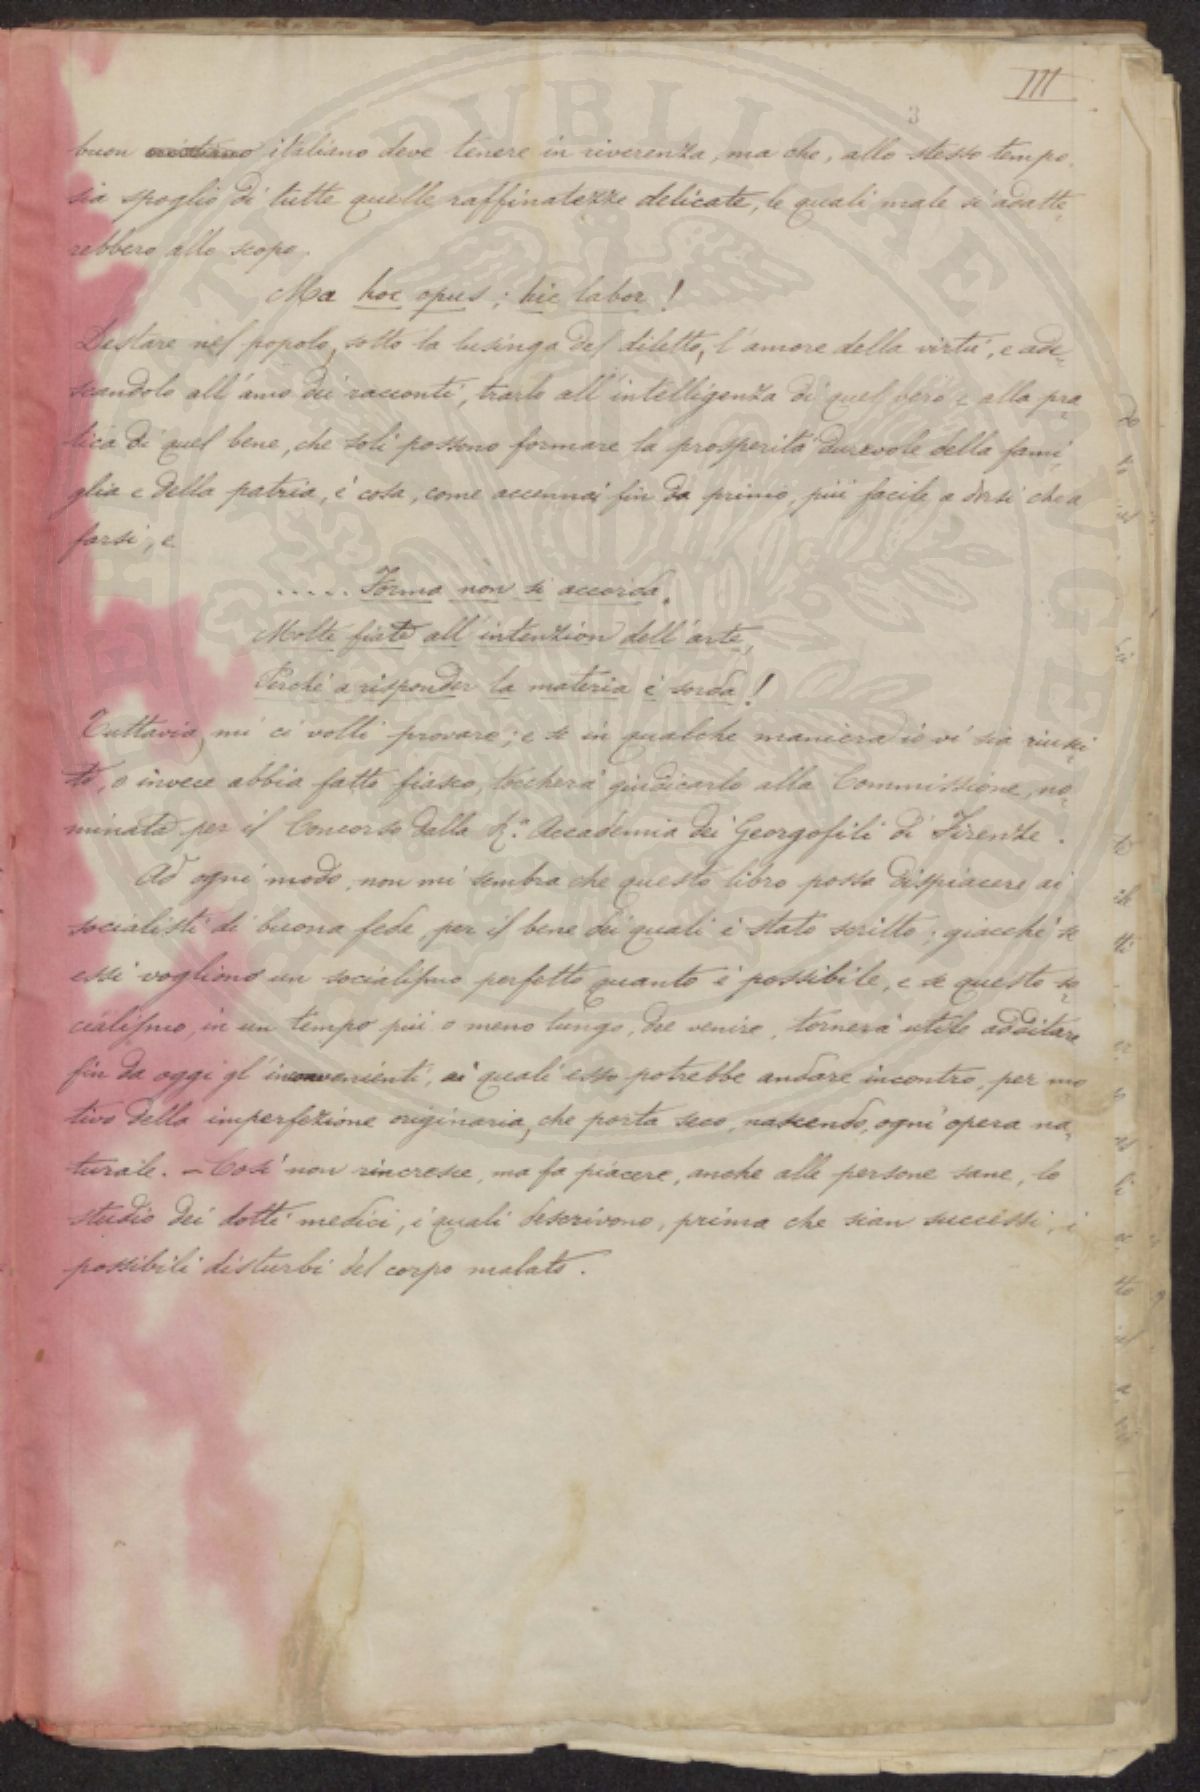 III
3
buon cristiano italiano deve tenere in riverenza, ma che, allo stesso tempo,
sia spoglio di tutte quelle raffinatezze delicate, le quali male si adatte-
rebbero allo scopo.
Ma hoc opus; hic labor!
Destare nel popolo, sotto la lusinga del diletto, l'amore della virtù, e ade-
scandolo all'amo dei racconti, trarlo all'intelligenza di quel vero e alla pra-
tica di quel bene, che soli possono formare la prosperità durevole della fami-
glia e della patria, è cosa, come accennai fin da primo, più facile a dirsi che a
farsi, e
..... Forma non si accorda,
Molte fiate all'intenzion dell'arte,
Perchè a risponder la materia è sorda!
Tuttavia, mi ci volli provare; e se in qualche maniera io vi sia riusci-
to, o invece abbia fatto fiasco, toccherà giudicarlo alla Commissione, no-
minata per il Concorso dalla R.a Accademia dei Georgofili di Firenze.
Ad ogni modo, non mi sembra che questo libro possa dispiacere ai
socialisti di buona fede, per il bene dei quali è stato scritto; giacchè se
essi vogliono un socialismo perfetto quanto è possibile, e se questo so-
cialismo, in un tempo più o meno lungo, dee venire, tornerà utile additare
fin da oggi gl'inconvenienti, ai quali esso potrebbe andare incontro, per mo
tivo della imperfezione originaria, che porta seco, nascendo, ogni opera na-
turale. – Così non rincresce, ma fa piacere, anche alle persone sane, lo
studio dei dotti medici, i quali descrivono, prima che sian successi, i
possibili disturbi del corpo malato.